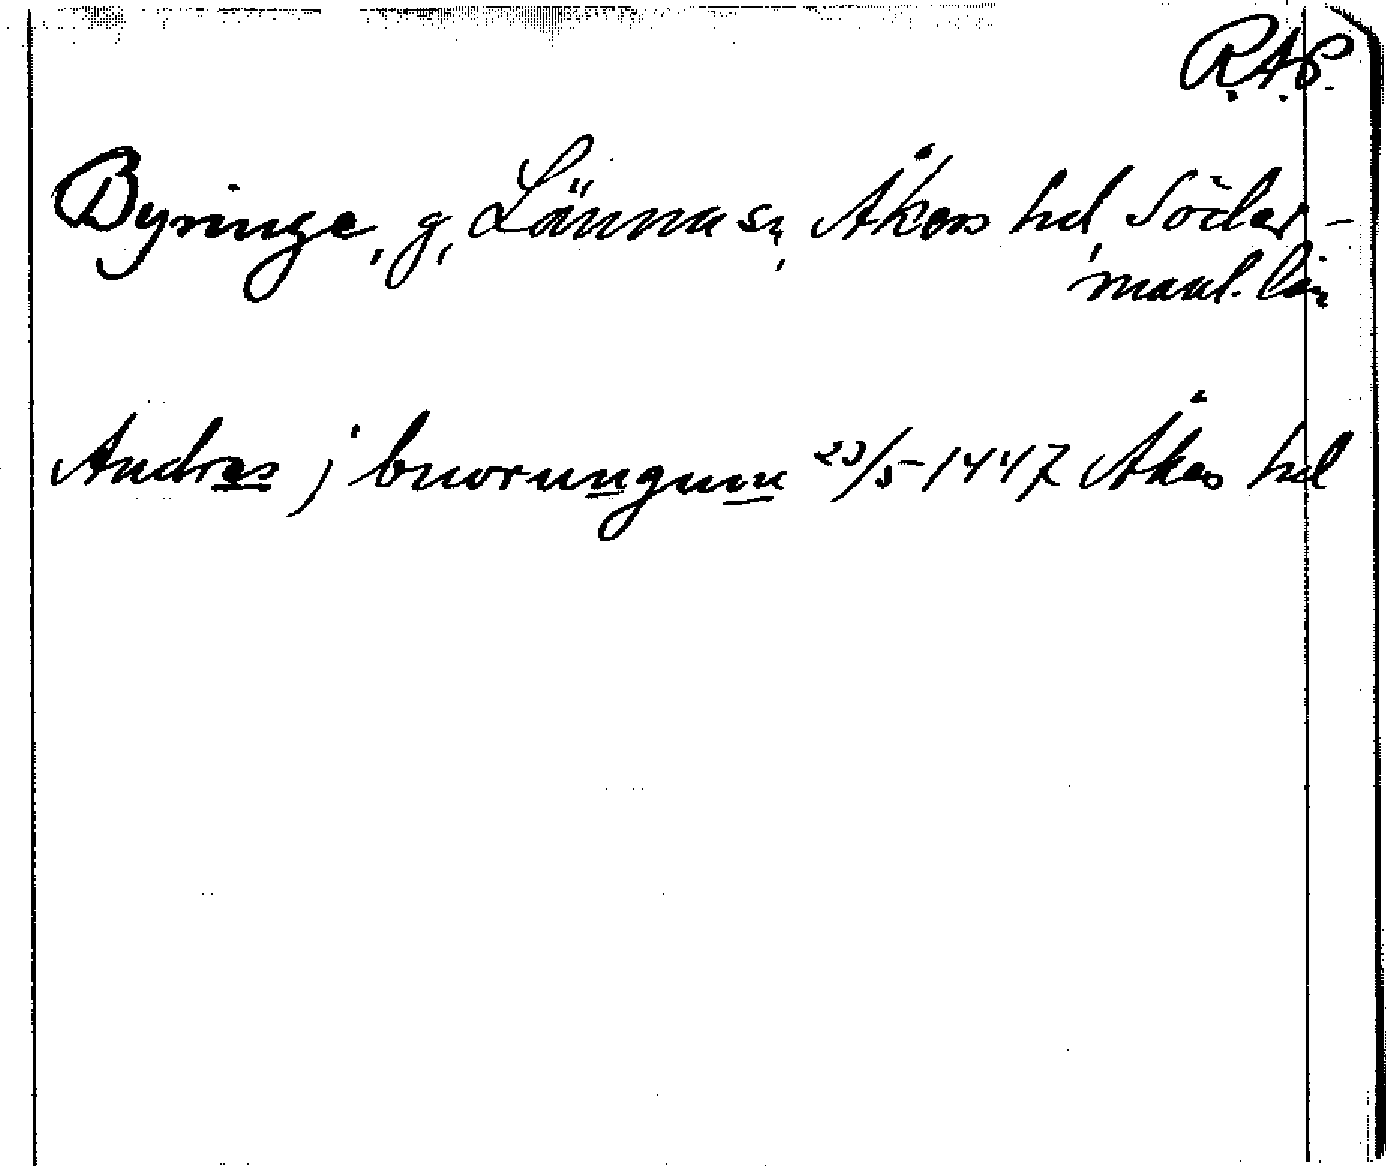 R.A.P.
Byringe, g, Länna sn, Åkers hd, Söder-
manl. län
Andres j buorungum 23/5-1447 Åkers hd